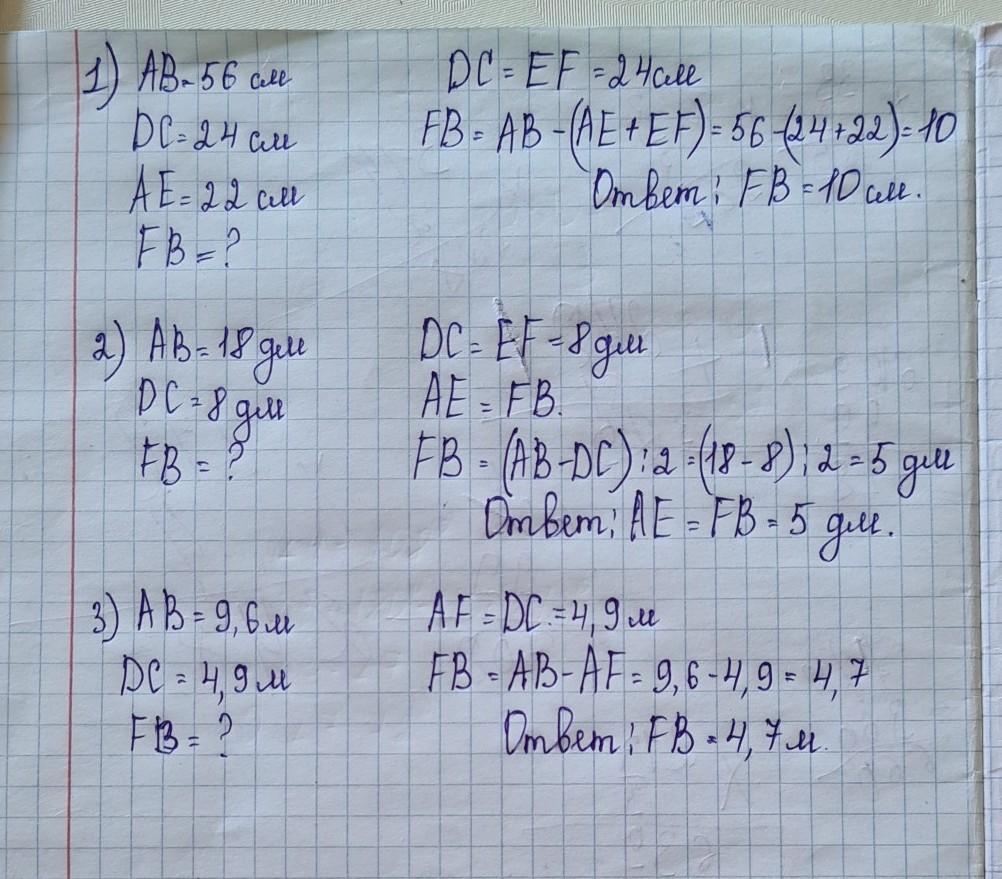 1) AB = 56 см
DC = 24 см
AE = 22 см
FB = ?
DC = EF = 24 см
FB = AB - (AE + EF) = 56 - (24 + 22) = 10
Ответ: FB = 10 см.
2) AB = 18 дм
DC = 8 дм
FB = ?
DC = EF = 8 дм
AE = FB.
FB = (AB - DC) : 2 = (18 - 8) : 2 = 5 дм
Ответ: AE = FB = 5 дм.
3) AB = 9,6 м
DC = 4,9 м
FB = ?
AF = DC = 4,9 м
FB = AB - AF = 9,6 - 4,9 = 4,7
Ответ: FB = 4,7 м.